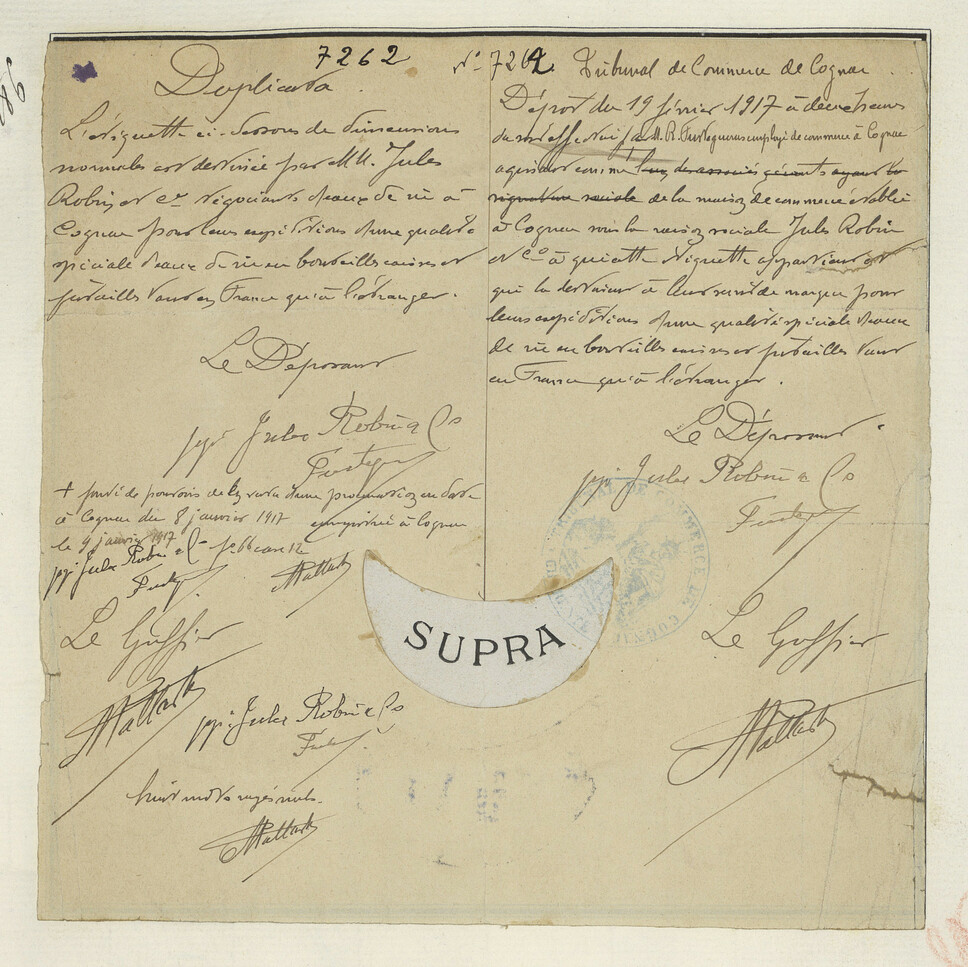 7262
Duplicata
L'étiquette ci-dessous de dimensions
normales est destinée par MM. Jules
Robin et Cie négociants d'eaux de vie à
Cognac pour leurs expéditions d'une qualité
spéciale d'eaux de vie en bouteilles caisses et
futailles tant en France qu'à l'étranger.
Le Déposant
ppi Jules Robin & Co
+ fondé de pouvoirs de la une procuration en date
à Cognac du 8 janvier 1917 enregistrée à Cognac
le 9 janvier 1917
ppi Jules Robin & Co
Le Greffier
ppi Jules Robin & Co
huit mots rayés nuls.
N° 7262 Tribunal de Commerce de Cognac
Dépôt du 19 février 1917 à deux heures
du soir effectué par M. R. employé de commerce à Cognac
agissant comme + l'un des associés gérants ayant la
signature sociale de la maison de commerce établie
à Cognac sous la raison sociale Jules Robin
et Co à qui cette étiquette appartient et
qui la destinent à leur servir de marque pour
leurs expéditions d'une qualité spéciale d'eaux
de vie en bouteilles caisses et futailles tant
en France qu'à l'étranger.
Le Déposant
ppi Jules Robin & Co
TRIBUNAL DE COMMERCE DE COGNAC
Le Greffier
SUPRA